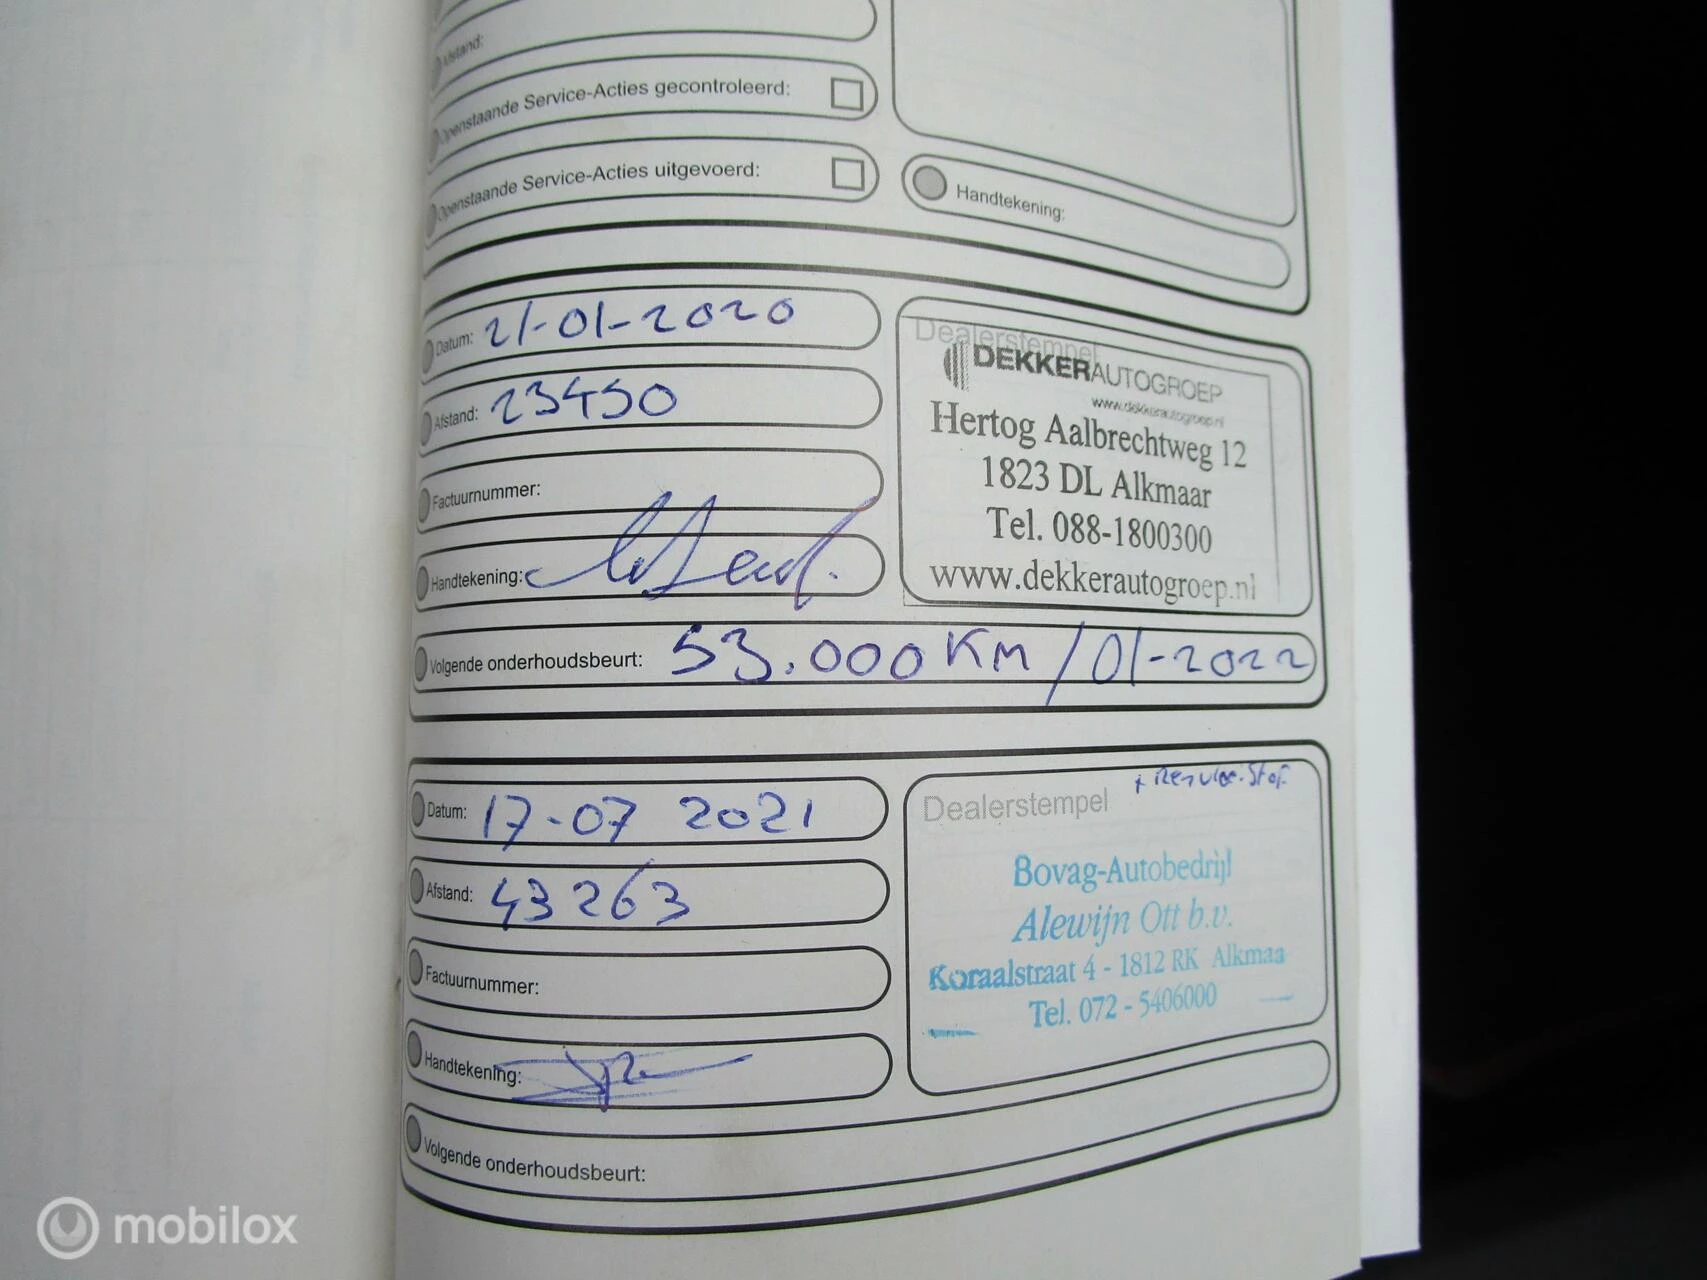 Afstand:
Openstaande Service-Acties gecontroleerd:
Openstaande Service-Acties uitgevoerd:
Handtekening:
Datum: 21-01-2020
Afstand: 23450
Factuurnummer:
Handtekening:
Dealerstempel
DEKKERAUTOGROEP
www.dekkerautogroep.nl
Hertog Aalbrechtweg 12
1823 DL Alkmaar
Tel. 088-1800300
www.dekkerautogroep.nl
Volgende onderhoudsbeurt: 53.000 KM / 01-2022
Datum: 17-07 2021
Afstand: 43263
Factuurnummer:
Handtekening:
Volgende onderhoudsbeurt:
+ Remvloeistof.
Dealerstempel
Bovag-Autobedrijf
Alewijn Ott b.v.
Koraalstraat 4 - 1812 RK Alkmaa
Tel. 072 - 5406000
mobilox